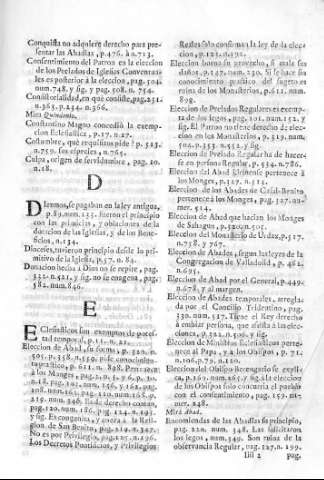 Conquista no adquiere derecho para pre-
sentar las Abadias, p.476. à n.713.
Consentimiento del Patron es la eleccion
de los Prelados de Iglesias Conventua-
les es posterior à la eleccion, pag. 504.
num.748. y sig. y pag. 508. n. 754.
Consistorialidad, en què consiste, pag.251.
n.365. p.254. n.366.
Mira Quindemio.
Constantino Magno concediò la exemp-
cion Eclesiastica, p.17. n.27.
Costumbre, què requisitos pide? p. 523.
n.759. sus especies, n.765.
Culpa, origen de servidumbre, pag. 10.
n.18.
D
Diezmos, se pagaban en la ley antigua,
p.89.num.135. fueron el principio
con las primicias, y oblaciones de la
dotacion de las Iglesias, y de los Bene-
ficios, n.134.
Dioceses, tuvieron principio desde la pri-
mitiva de la Iglesia, p.57. n. 84.
Donacion hecha à Dios no se repite, pag.
322. n.521. y sig. no se enagena, pag.
582. num.846.
E
Eclesiasticos son exemptos de potes-
tad temporal, p.11. n. 21.
Eleccion de Abad, su forma, p. 320. n.
501. p.358. n.559. pide conocimien-
to practico, p. 611. n. 898. Pertenece
à los Monges, pag.
y sig. Es congenita, y quota à la Reli-
gion de San Benito, pag.219. n.347.
No es por Privilegio, pag.125. n.196.
Los Decretos Pontificios, y Privilegios
Reales solo confirman la ley de la elec-
cion, p.121. n.192.
Eleccion buena su provecho, si mala sus
daños, p.147. num. 230. Si se hace sin
conocimiento practico del sugeto es
ruina de los Monasterios, p.612. num.
898.
Eleccion de Prelados Regulares es exemp-
ta de toda Ley, pag. 101. num. 152. y
sig. El Patron no tiene derecho de elec-
cion en los Monasterios, p. 319. num.
502. p.353. n.552. y sig.
Eleccion de Prelado Regular ha de hacer-
se en persona Regular, p. 534. n.786.
Eleccion del Abad pertenece à
los Monges, p.327. n.513.
Eleccion de los Abades de Casas Benito
pertenece à los Monges, pag. 327. nu-
mer. 514.
Eleccion de Abad que hacian los Monges
de Sahagun, p.320. n.501.
Eleccion del Monasterio de Urdax, p.517.
n.758. y 767.
Eleccion de Abades, segun las leyes de la
Congregacion de Valladolid, p. 462.
n.695.
Eleccion de Abad por el General, p.449.
n.678. y al margen.
Eleccion de Abades temporales, arregla-
da por el Concilio Tridentino, pag.
330. num.517. Tiene el Rey derecho
à embiar persona, que asista à la elec-
cion, p.512. n.506. y sig.
Eleccion de Ministros Eclesiasticos perte-
nece al Papa, y à los Obispos, p. 71.
n.106. p.73. n.110.
Eleccion del Obispo Berengario se expli-
ca, p.167. num.263. y sig. à la eleccion
de los Obispos solo concurria el pueblo
con el consentimiento, pag. 159. num.
248.
Mira Abad.
Encomiendas de las Abadias su principio,
pag. 220. num. 348. Las solicitaron
los legos, num. 349. Son ruina de la
observancia Regular, pag. 127. n. 199.
Iiii 2 pag.